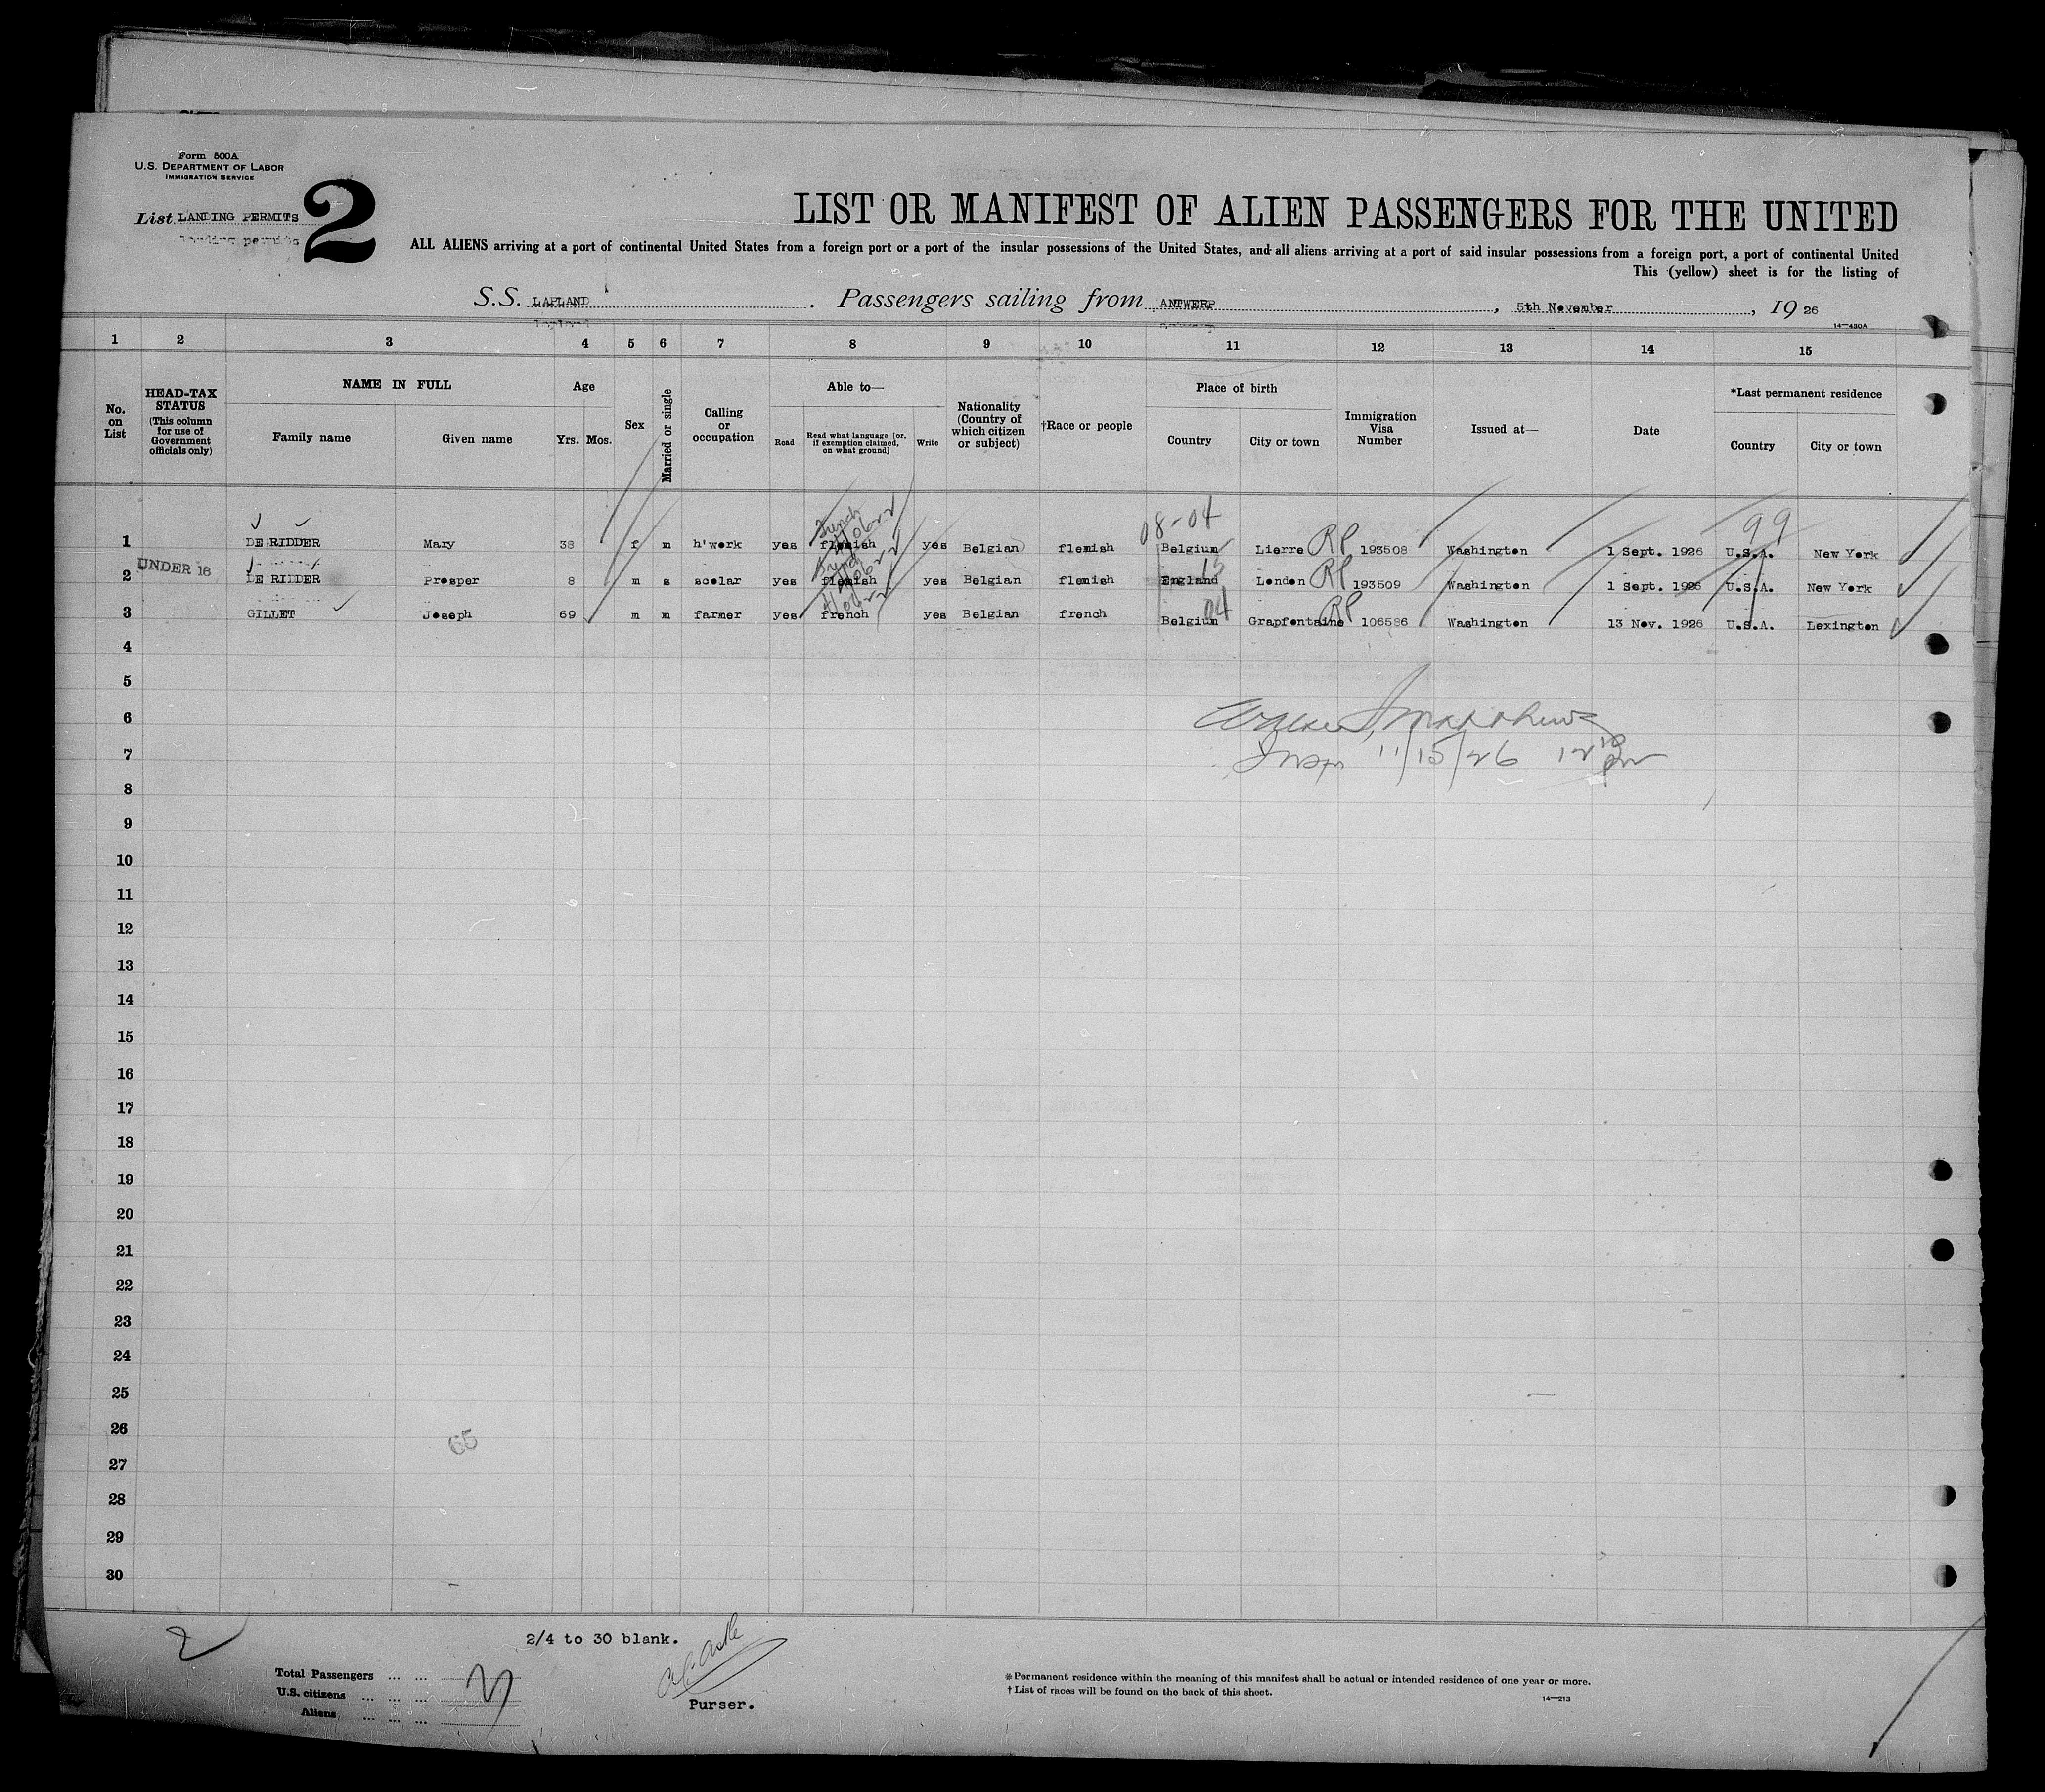 Form 500A
U.S. DEPARTMENT OF LABOR
IMMIGRATION SERVICE
List LANDING PERMITS
2
LIST OR MANIFEST OF ALIEN PASSENGERS FOR THE UNITED
ALL ALIENS arriving at a port of continental United States from a foreign port or a port of the insular possessions of the United States, and all aliens arriving at a port of said insular possessions from a foreign port, a port of continental United
This (yellow) sheet is for the listing of
S.S. LAPLAND. Passengers sailing from ANTWERP, 5th November, 1926
14—430A
1 2 3 4 5 6 7 8 9 10 11 12 13 14 15
No. on List
HEAD-TAX STATUS
(This column for use of Government officials only)
NAME IN FULL
Family name Given name
Age
Yrs. Mos.
Sex
Married or single
Calling or occupation
Able to—
Read
Read what language [or, if exemption claimed, on what ground]
Write
Nationality (Country of which citizen or subject)
†Race or people
Place of birth
Country City or town
Immigration Visa Number
Issued at—
Date
*Last permanent residence
Country City or town
08-04 99
1 DE RIDDER Mary 38 f m h'work yes flemish french yes Belgian flemish Belgium Lierre RP 193508 Washington 1 Sept. 1926 U.S.A. New York
UNDER 16
2 DE RIDDER Prosper 8 m s scolar yes flemish french yes Belgian flemish England 15 London RP 193509 Washington 1 Sept. 1926 U.S.A. New York
3 GILLET Joseph 69 m m farmer yes french yes Belgian french Belgium 04 Grapfontaine RP 106586 Washington 13 Nov. 1926 U.S.A. Lexington
4
5
6
7
Insp 11/15/26 12 10 pm
8
9
10
11
12
13
14
15
16
17
18
19
20
21
22
23
24
25
26
65
27
28
29
30
2
2/4 to 30 blank.
Total Passengers ... ...
U.S. citizens ... ... ...
Aliens ... ... ...
Purser.
* Permanent residence within the meaning of this manifest shall be actual or intended residence of one year or more.
† List of races will be found on the back of this sheet.
14—213